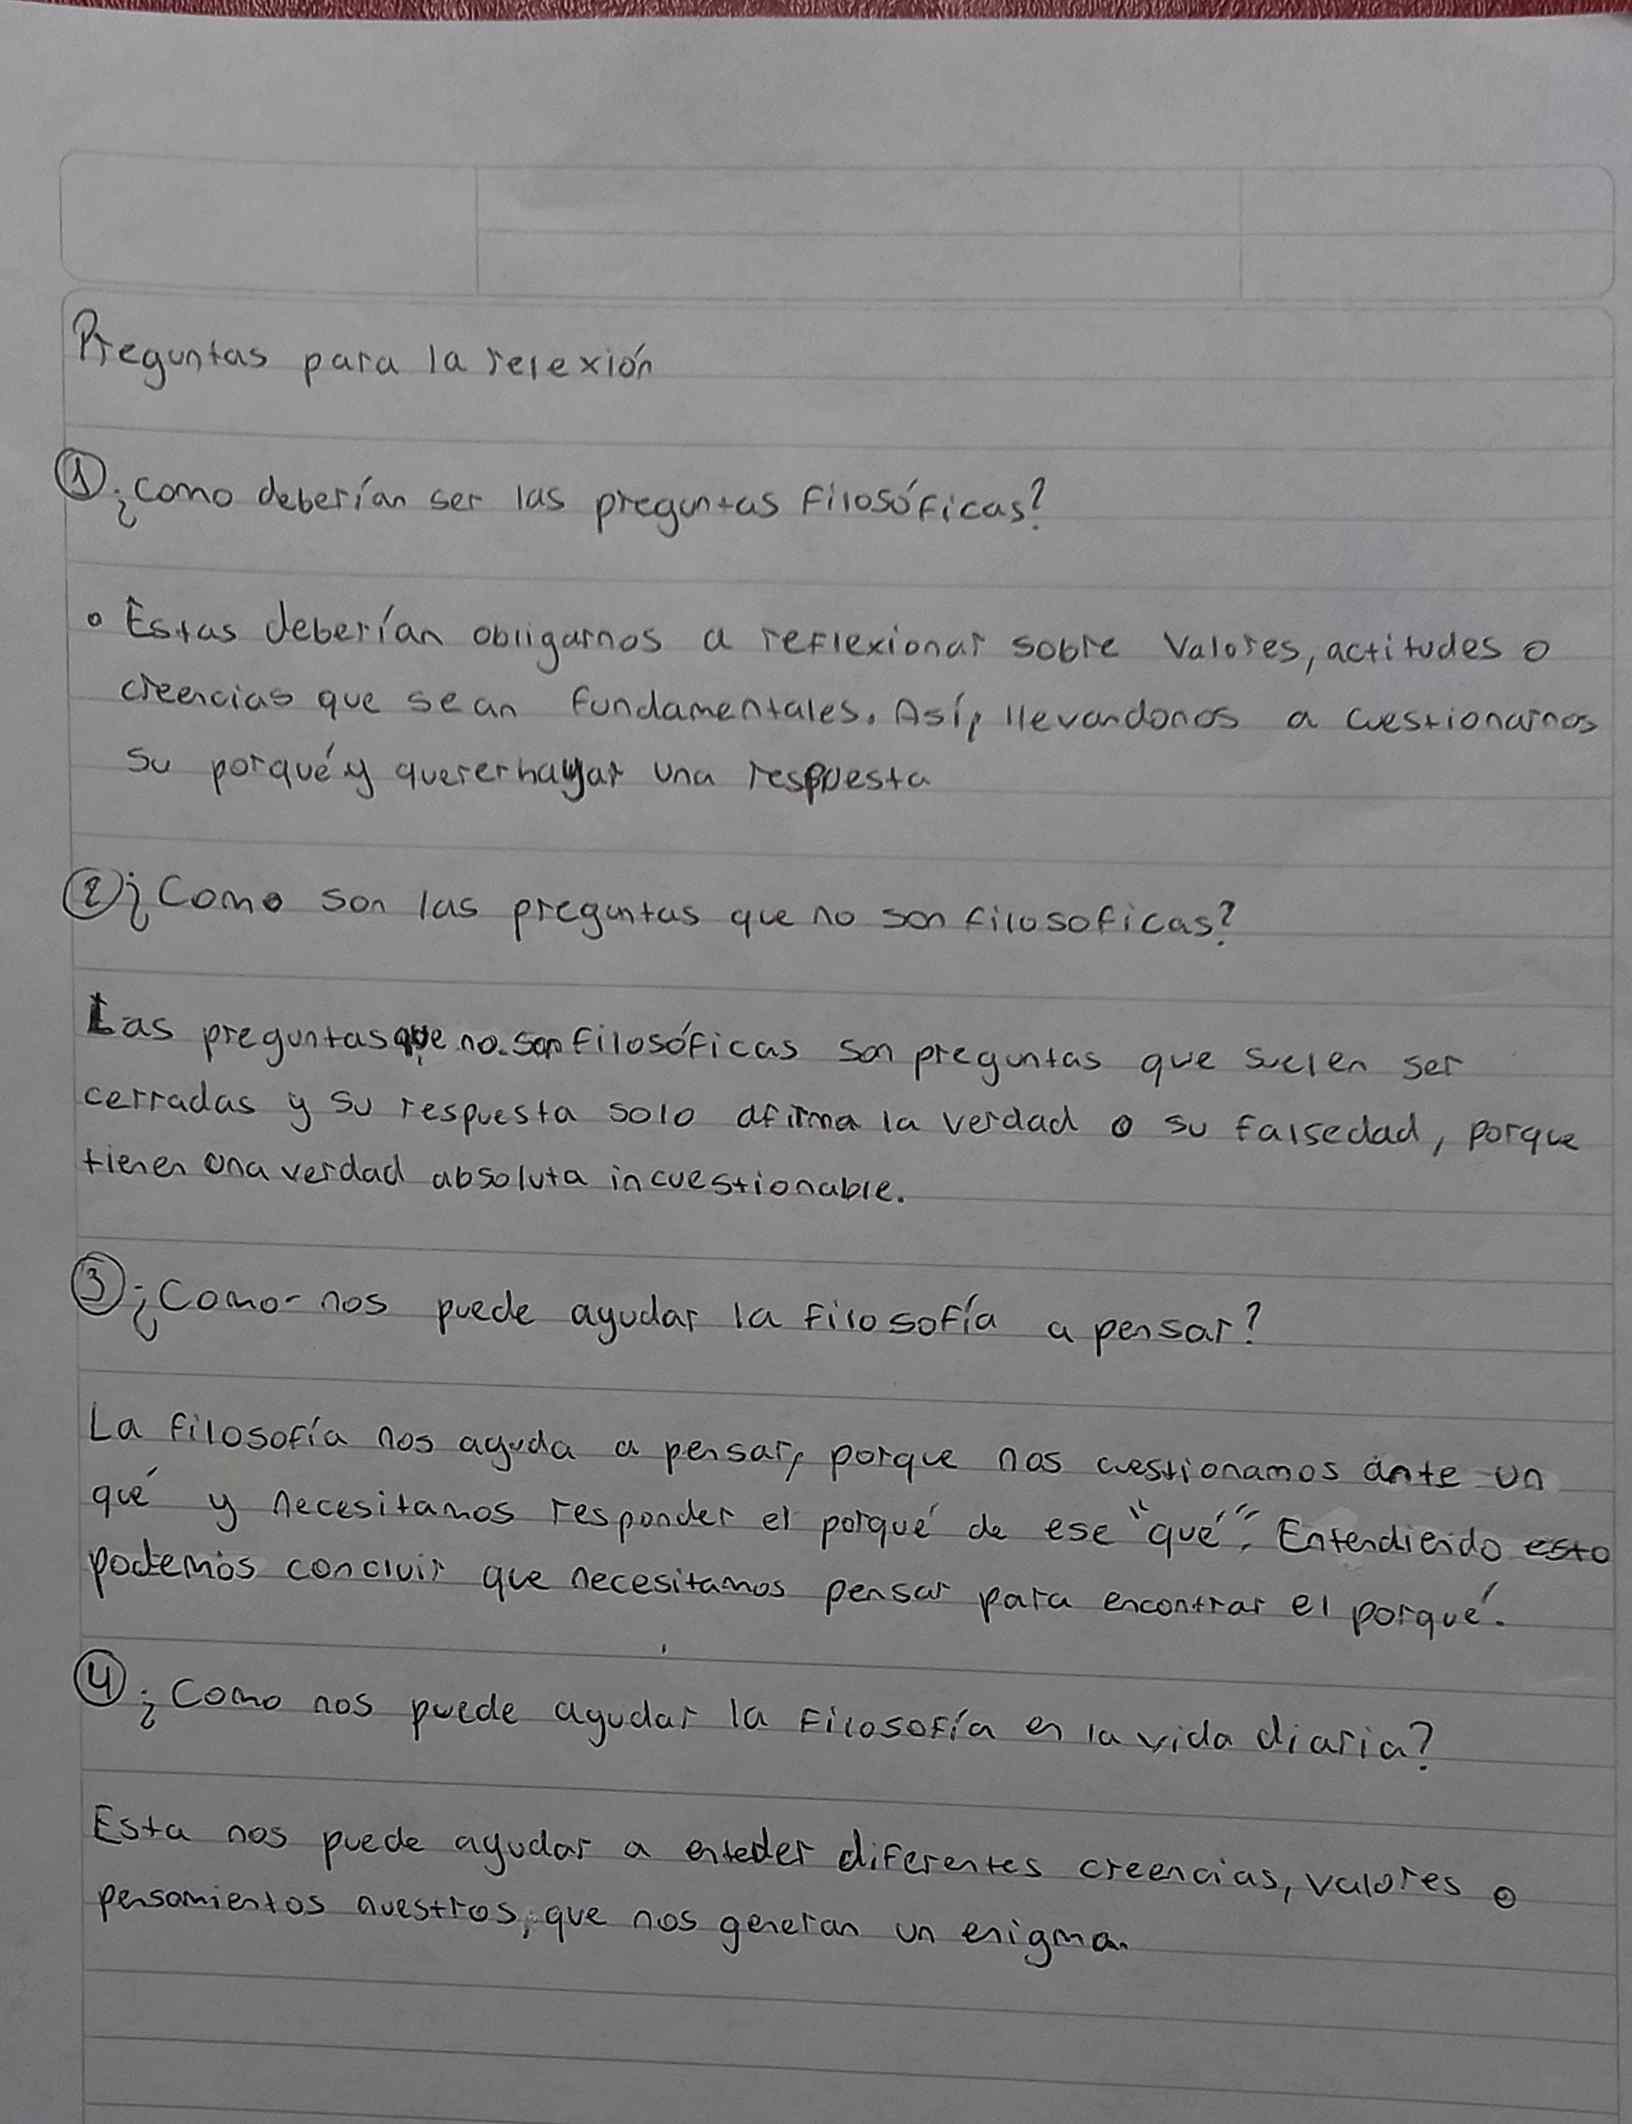 Preguntas para la relexión
① ¿como deberían ser las preguntas filosóficas?
• Estas deberían obligarnos a reflexionar sobre valores, actitudes o
creencias que sean fundamentales. Así, llevandonos a cuestionarnos
su porqué y querer hayar una respuesta
② ¿Como son las preguntas que no son filosoficas?
Las preguntas que no son filosóficas son preguntas que suelen ser
cerradas y su respuesta solo afirma la verdad o su falsedad, porque
tienen una verdad absoluta incuestionable.
③ ¿Como nos puede ayudar la filosofía a pensar?
La filosofía nos ayuda a pensar, porque nos cuestionamos ante un
qué y necesitamos responder el porqué de ese "qué". Entendiendo esto
podemos concluir que necesitamos pensar para encontrar el porqué.
④ ¿Como nos puede ayudar la filosofía en la vida diaria?
Esta nos puede ayudar a enteder diferentes creencias, valores o
pensamientos nuestros, que nos generan un enigma.